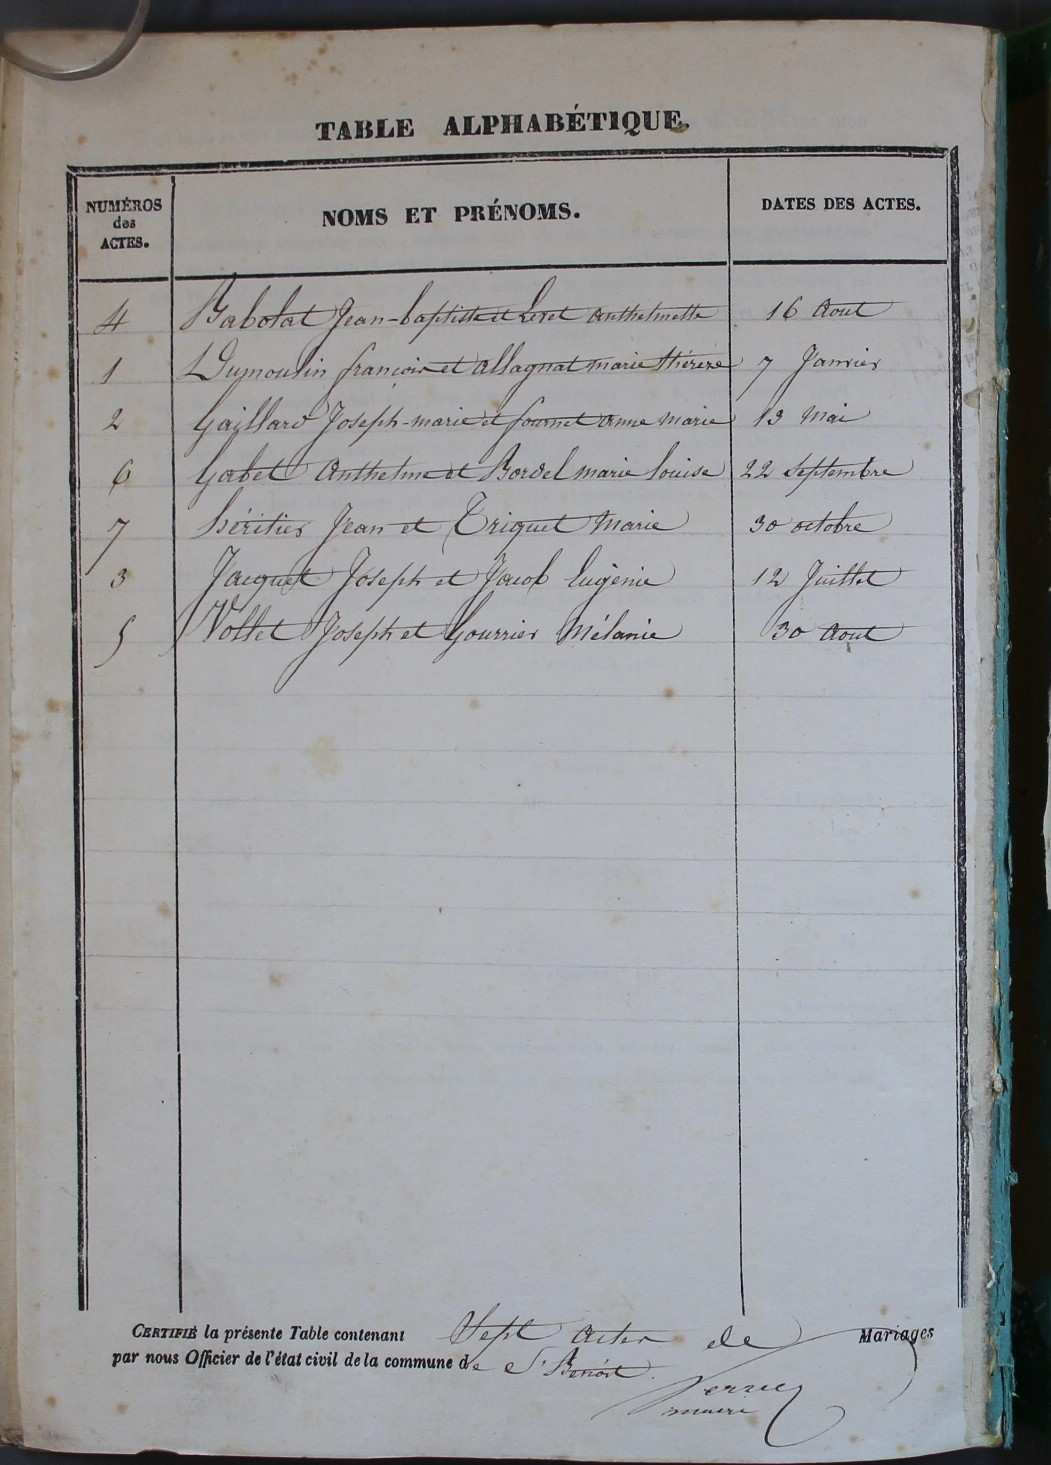 TABLE ALPHABÉTIQUE.
NUMÉROS des ACTES. NOMS ET PRÉNOMS. DATES DES ACTES.
4 Babolat Jean-baptiste et Leret anthelmette 16 Aout
1 Dumoulin françois et allagnat marie thérèze 7 Janvier
2 Gaillard Joseph-marie et fournet anne marie 13 Mai
6 Gabet Anthelme et Bordel marie louise 22 Septembre
7 héritier Jean et Triquet Marie 30 octobre
3 Jacquet Joseph et Jacob Eugénie 12 Juillet
5 Vollet Joseph et Gourrier Mélanie 30 Aout
CERTIFIÉ la présente Table contenant Sept actes de Mariages
par nous Officier de l'état civil de la commune de St Benoit.
maire